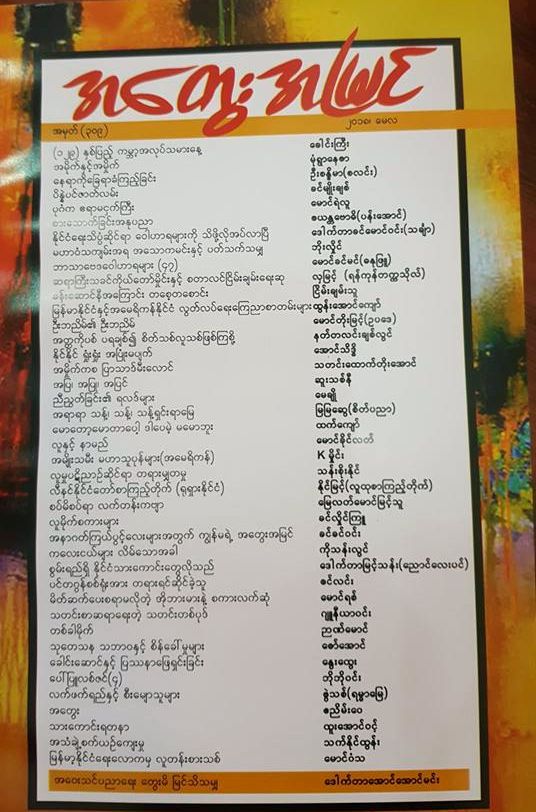 အတွေးအမြင်
အမှတ် (၃၀၉) ၂၀၁၈၊ မေလ
(၁၂၉) နှစ်ပြည့် ကမ္ဘာ့အလုပ်သမားနေ့ ခေါင်းကြီး
အမိုက်နှင့်အမှိုက် မုံရွာနေဇာ
နေရာကိုခြေရာခံကြည့်ခြင်း ဦးစန္ဓိမာ(စလင်း)
ပိန္နဲပင်ဇာတ်လမ်း ခင်မျိုးချစ်
ပုဂံက ဧရာမငှက်ကြီး မောင်ရဲလူ
စားသောက်ခြင်းအနုပညာ ဇေယန္တဗောဓိ(ပန်းအောင်)
နိုင်ငံရေးသိပ္ပံဆိုင်ရာ ဝေါဟာရများကို သိဖို့လိုအပ်လာပြီ ဒေါက်တာခင်မောင်ဝင်း(သင်္ချာ)
မဟာဝံသကျမ်းအရ အသောကမင်းနှင့် ပတ်သက်သမျှ ဘိုးလှိုင်
ဘာသာဗေဒဝေါဟာရများ (၄၇) မောင်ခင်မင်(ဓနုဖြူ)
ဆရာကြီးသခင်ကိုယ်တော်မှိုင်းနှင့် စတာလင်ငြိမ်းချမ်းရေးဆု လှမြင့် (ရန်ကုန်တက္ကသိုလ်)
မန်းဆောင်နီအကြောင်း တစေ့တစောင်း ငြိမ်းချမ်းသူ
မြန်မာနိုင်ငံနှင့်အမေရိကန်နိုင်ငံ လွတ်လပ်ရေးကြေညာစာတမ်းများ ထွန်းအောင်ကျော်
ဦးဘညိမ်၏ ဦးဘညိမ် မောင်တိုးမြင့်(ဥပဒေ)
အတ္တကိုပစ် ပရချစ်၍ စိတ်သစ်လူသစ်ဖြစ်ကြစို့ နတ်တလင်းချစ်လွင်
နိုင်နိုင် ရှုံးရှုံး အပြုံးမပျက် အောင်သိဒ္ဓိ
အမှိုက်ကစ ပြာသာဒ်မီးလောင် သတင်းထောက်တိုးအောင်
အပြု၊ အပြု၊ အပြင် ဆူးသစ်နီ
ညီညွတ်ခြင်း၏ ရလဒ်များ မေချို
အရာရာ သန့်၊ သန့်၊ သန့်ရှင်းရာမြေ မြမြဆွေ(စိတ်ပညာ)
မောတော့မောတာပေါ့ ဒါပေမဲ့ မမောဘူး ထက်ကျော်
လူနှင့် နာမည် မောင်ခိုင်လတ်
အမျိုးသမီး မဟာသူပုန်များ(အမေရိကန်) K မှိုင်း
လူမှုပဋိညာဉ်ဆိုင်ရာ တရားမျှတမှု သန်းစိုးနိုင်
လီနင်နိုင်ငံတော်စာကြည့်တိုက် (ရုရှားနိုင်ငံ) နိုင်မြင့်(လူထုစာကြည့်တိုက်)
စပ်မိစပ်ရာ လက်တန်းကဗျာ မြေလတ်မောင်မြင့်သူ
လူမိုက်စကားများ ခင်လှိုင်ကြူ
အနာဂတ်ကြယ်ပွင့်လေးများအတွက် ကျွန်မရဲ့ အတွေးအမြင် ခင်ခင်ဝင်း
ကလေးငယ်များ လိမ်သောအခါ ကိုသန်းလွင်
စွမ်းရည်ရှိ နိုင်ငံသားကောင်းတွေလိုသည် ဒေါက်တာမြင့်သန်း(ညောင်လေးပင်)
ပင်တဂွန်စစ်ရုံးအား တရားရင်ဆိုင်ခဲ့သူ ဇင်လင်း
မိတ်ဆက်ပေးစရာမလိုတဲ့ အိုဘားမားနဲ့ စကားလက်ဆုံ မောင်ရစ်
သတင်းစာဆရာရေးတဲ့ သတင်းတစ်ပုဒ် ဂျူနီယာဝင်း
တစ်ခါမိုက် ဉာဏ်မောင်
သုတေသန သဘာဝနှင့် စိန်ခေါ်မှုများ ဇော်အောင်
ခေါင်းဆောင်နှင့် ပြဿနာဖြေရှင်းခြင်း နွေးထွေး
ပေါ်ပြူလစ်ဇင်(၄) ဘိုဘိုဝင်း
လက်ဖက်ရည်နှင့် စီးမျောသူများ ခွဲသစ်(ရမ္မာမြေ)
အတွေး ဧညိမ်းဝေ
သားကောင်းရတနာ ထူးအောင်ဝင့်
အသံချဲ့စက်ယဉ်ကျေးမှု သက်နိုင်ထွန်း
မြန်မာ့နိုင်ငံရေးလောကမှ လူတန်းစားသစ် မောင်ဝံသ
အဝေးသင်ပညာရေး တွေးမိ မြင်သိသမျှ ဒေါက်တာအောင်အောင်မင်း